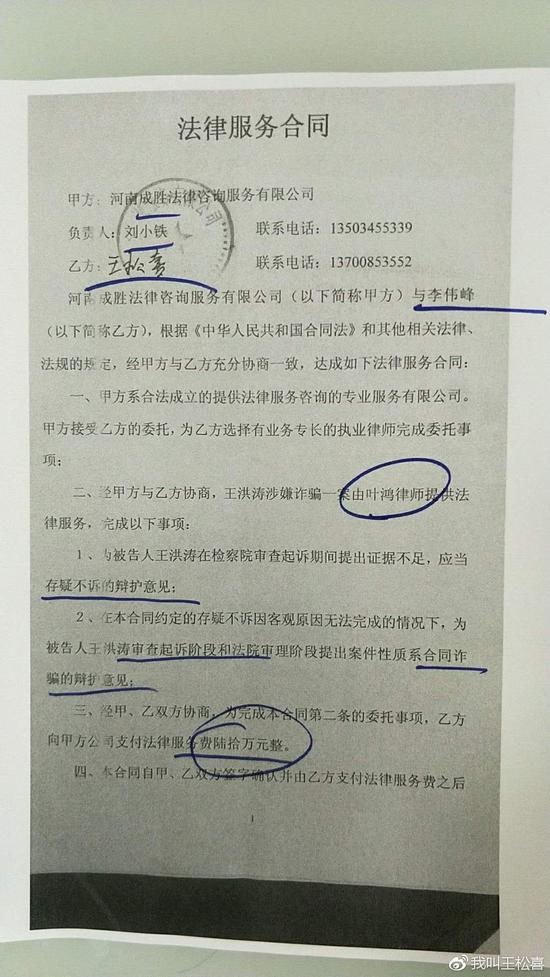 法律服务合同
甲方：河南成胜法律咨询服务有限公司
负责人：刘小铁 联系电话：13503455339
乙方：王松喜 联系电话：13700853552
河南成胜法律咨询服务有限公司（以下简称甲方）与李伟峰
（以下简称乙方），根据《中华人民共和国合同法》和其他相关法律、
法规的规定，经甲方与乙方充分协商一致，达成如下法律服务合同：
一、甲方系合法成立的提供法律服务咨询的专业服务有限公司。
甲方接受乙方的委托，为乙方选择有业务专长的执业律师完成委托事
项；
二、经甲方与乙方协商，王洪涛涉嫌诈骗一案由叶鸿律师提供法
律服务，完成以下事项：
1、为被告人王洪涛在检察院审查起诉期间提出证据不足，应当
存疑不诉的辩护意见；
2、在本合同约定的存疑不诉因客观原因无法完成的情况下，为
被告人王洪涛审查起诉阶段和法院审理阶段提出案件性质系合同诈
骗的辩护意见；
三、经甲、乙双方协商，为完成本合同第二条的委托事项，乙方
向甲方公司支付法律服务费陆拾万元整。
四、本合同自甲、乙双方签字确认并由乙方支付法律服务费之后
1
我叫王松喜